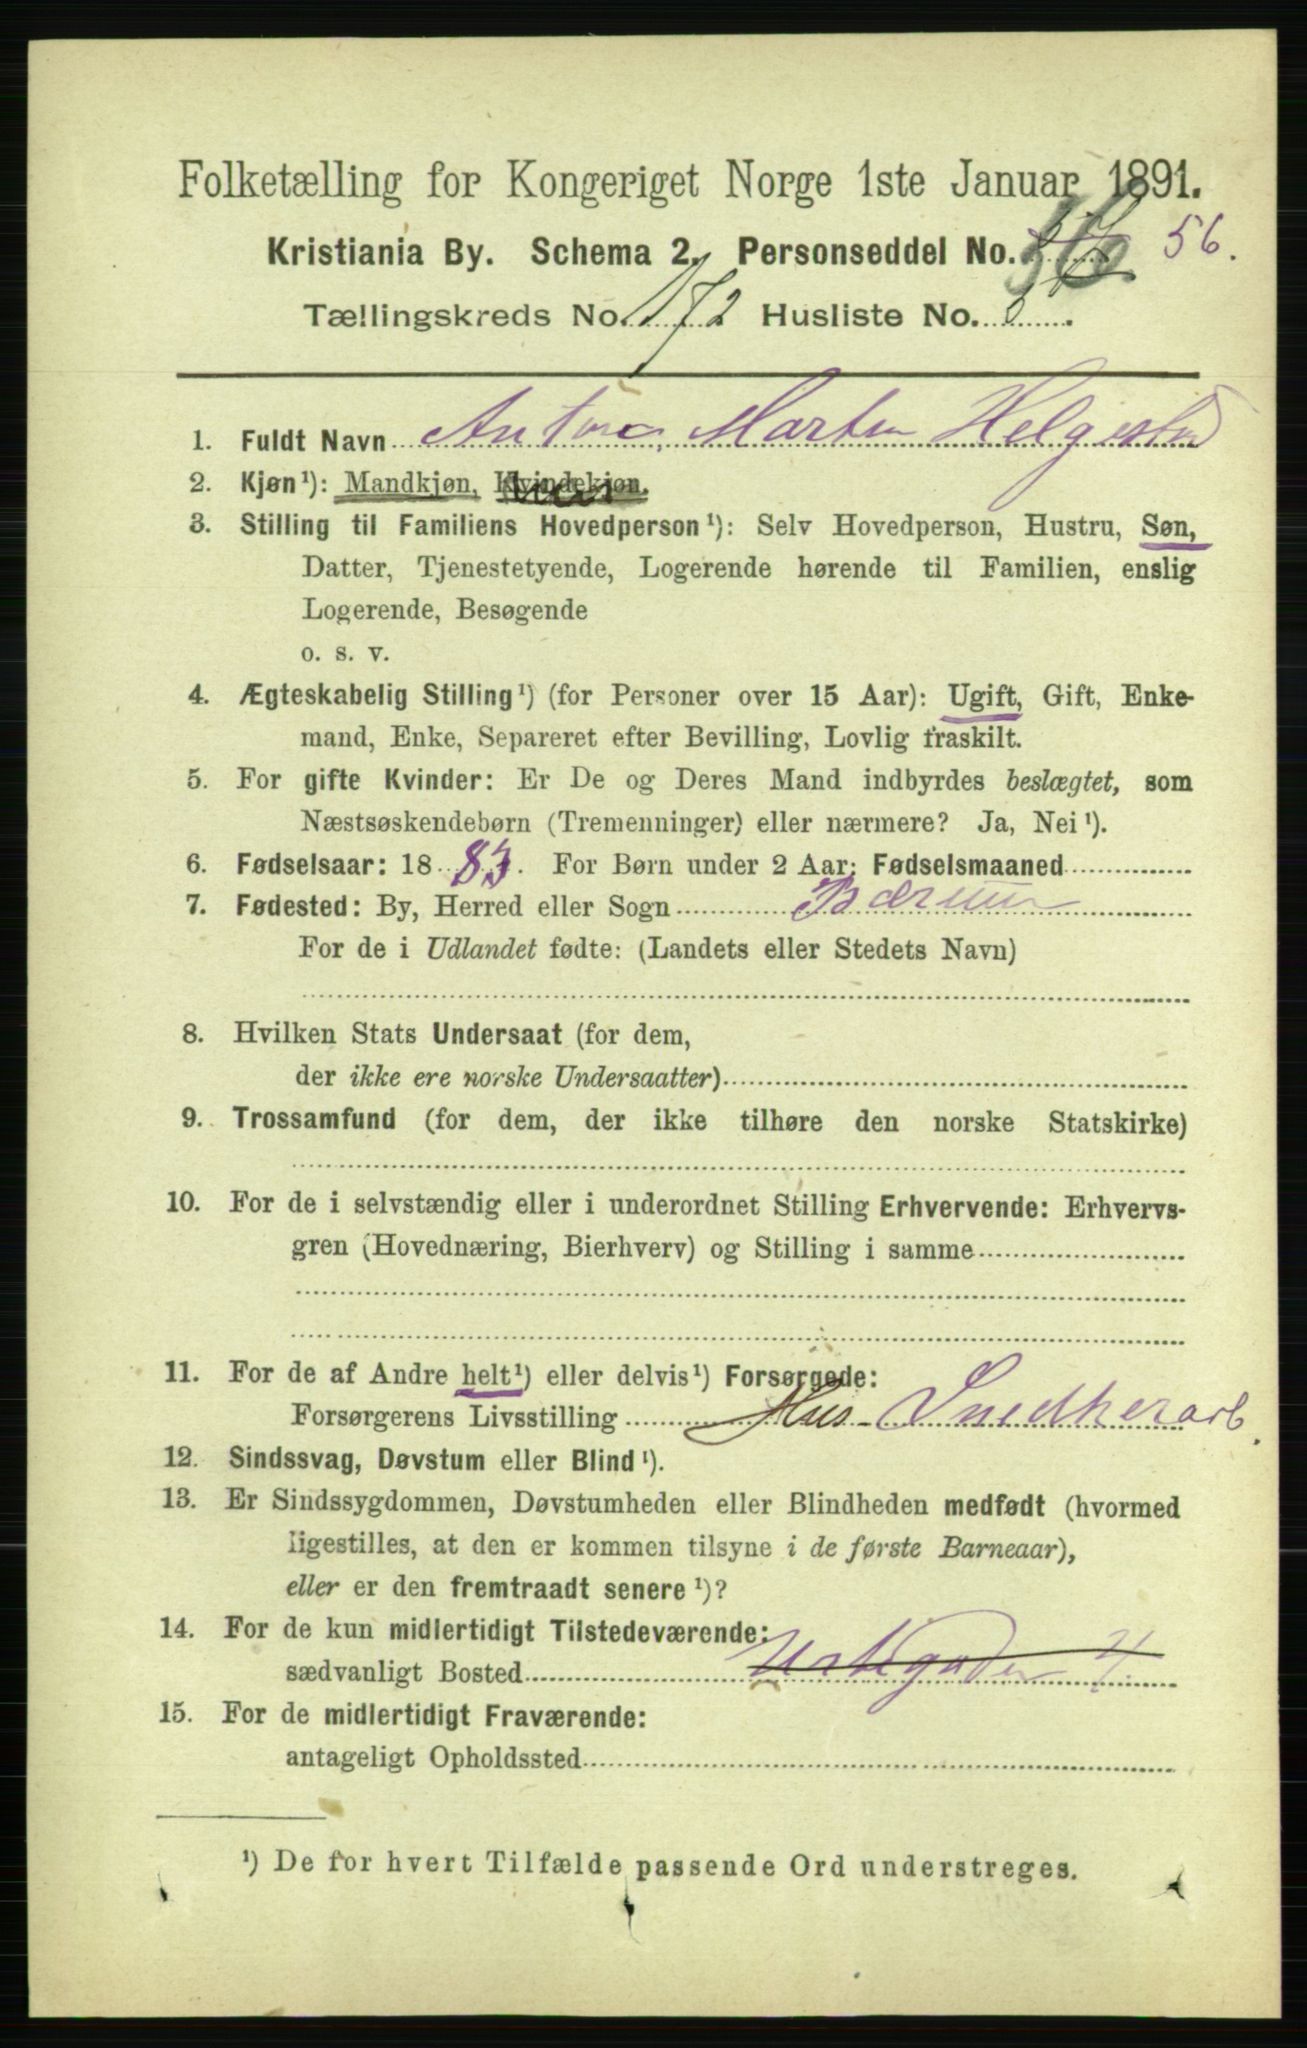 Folketælling for Kongeriget Norge 1ste Januar 1891.
Kristiania By. Schema 2. Personseddel No. 56.
Tællingskreds No. 172 Husliste No. 2.
1. Fuldt Navn Anton Martin Helgestad
2. Kjøn¹): Mandkjøn, Kvindekjøn.
3. Stilling til Familiens Hovedperson¹): Selv Hovedperson, Hustru, Søn,
Datter, Tjenestetyende, Logerende hørende til Familien, enslig
Logerende, Besøgende
o. s. v.
4. Ægteskabelig Stilling¹) (for Personer over 15 Aar): Ugift, Gift, Enke-
mand, Enke, Separeret efter Bevilling, Lovlig fraskilt.
5. For gifte Kvinder: Er De og Deres Mand indbyrdes beslægtet, som
Næstsøskendebørn (Tremenninger) eller nærmere? Ja, Nei¹).
6. Fødselsaar: 1883. For Børn under 2 Aar: Fødselsmaaned
7. Fødested: By, Herred eller Sogn Bærum
For de i Udlandet fødte: (Landets eller Stedets Navn)
8. Hvilken Stats Undersaat (for dem,
der ikke ere norske Undersaatter)
9. Trossamfund (for dem, der ikke tilhøre den norske Statskirke)
10. For de i selvstændig eller i underordnet Stilling Erhvervende: Erhvervs-
gren (Hovednæring, Bierhverv) og Stilling i samme
11. For de af Andre helt¹) eller delvis¹) Forsørgede:
Forsørgerens Livsstilling Hus-Snedkerarb.
12. Sindssvag, Døvstum eller Blind¹).
13. Er Sindssygdommen, Døvstumheden eller Blindheden medfødt (hvormed
ligestilles, at den er kommen tilsyne i de første Barneaar),
eller er den fremtraadt senere¹)?
14. For de kun midlertidigt Tilstedeværende:
sædvanligt Bosted Urtegaden 4
15. For de midlertidigt Fraværende:
antageligt Opholdssted
¹) De for hvert Tilfælde passende Ord understreges.